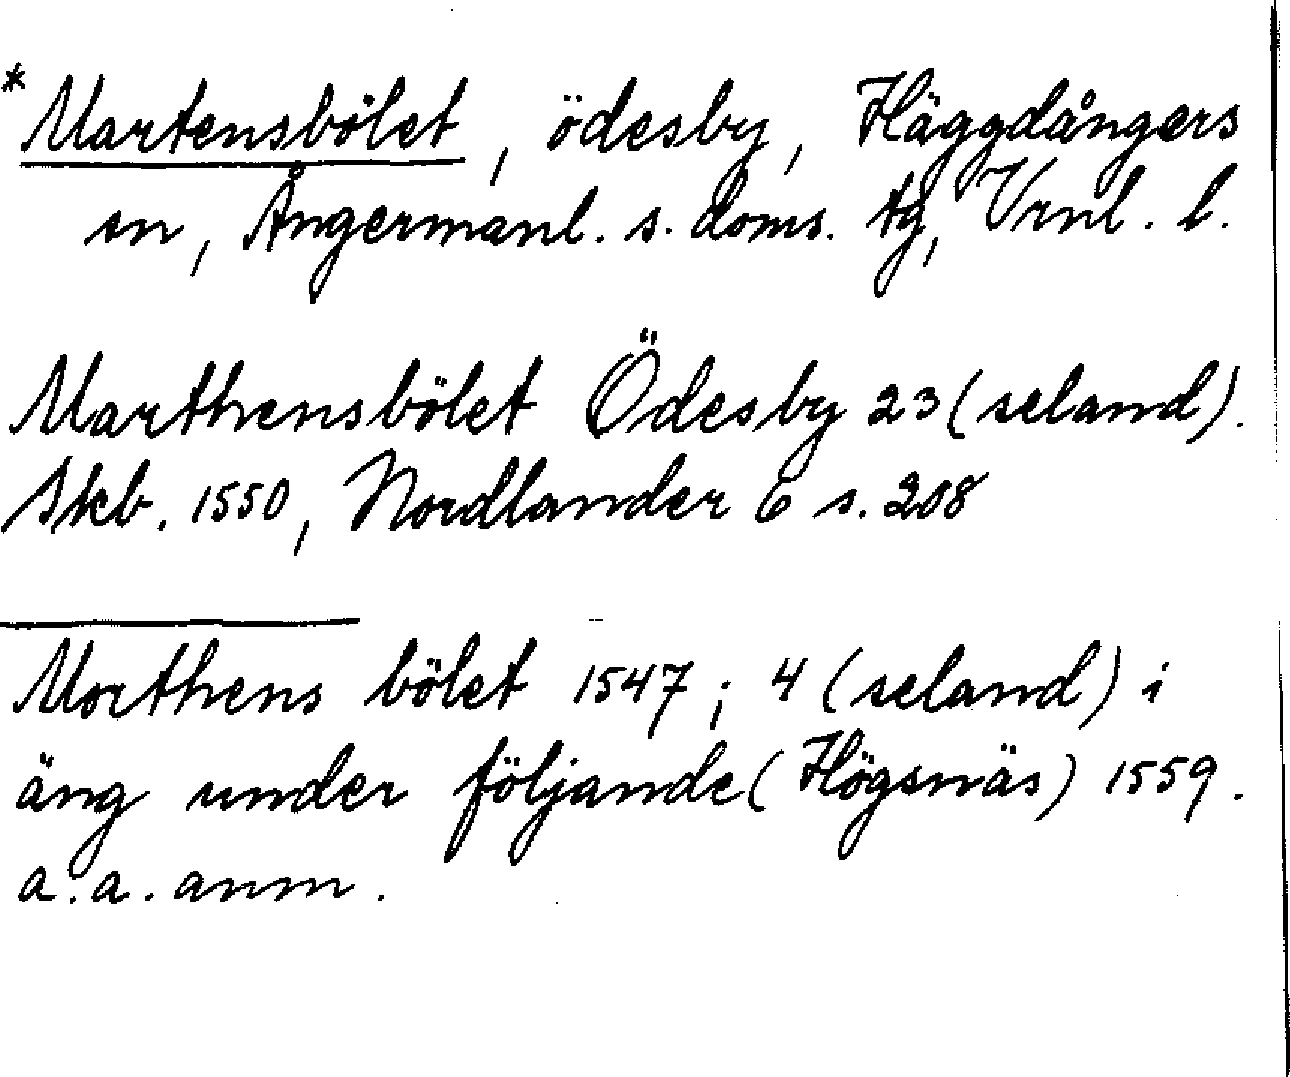 * Martensbölet, ödesby, Häggdångers
sn, Ångermanl. s. doms. tg, Vrnl. l.
Marthensbölet Ödesby 23 (seland).
Skb. 1550, Nordlander 6 s. 208
Morthens bölet 1547; 4 (seland) i
äng under följande (Högsnäs) 1559.
a. a. anm.